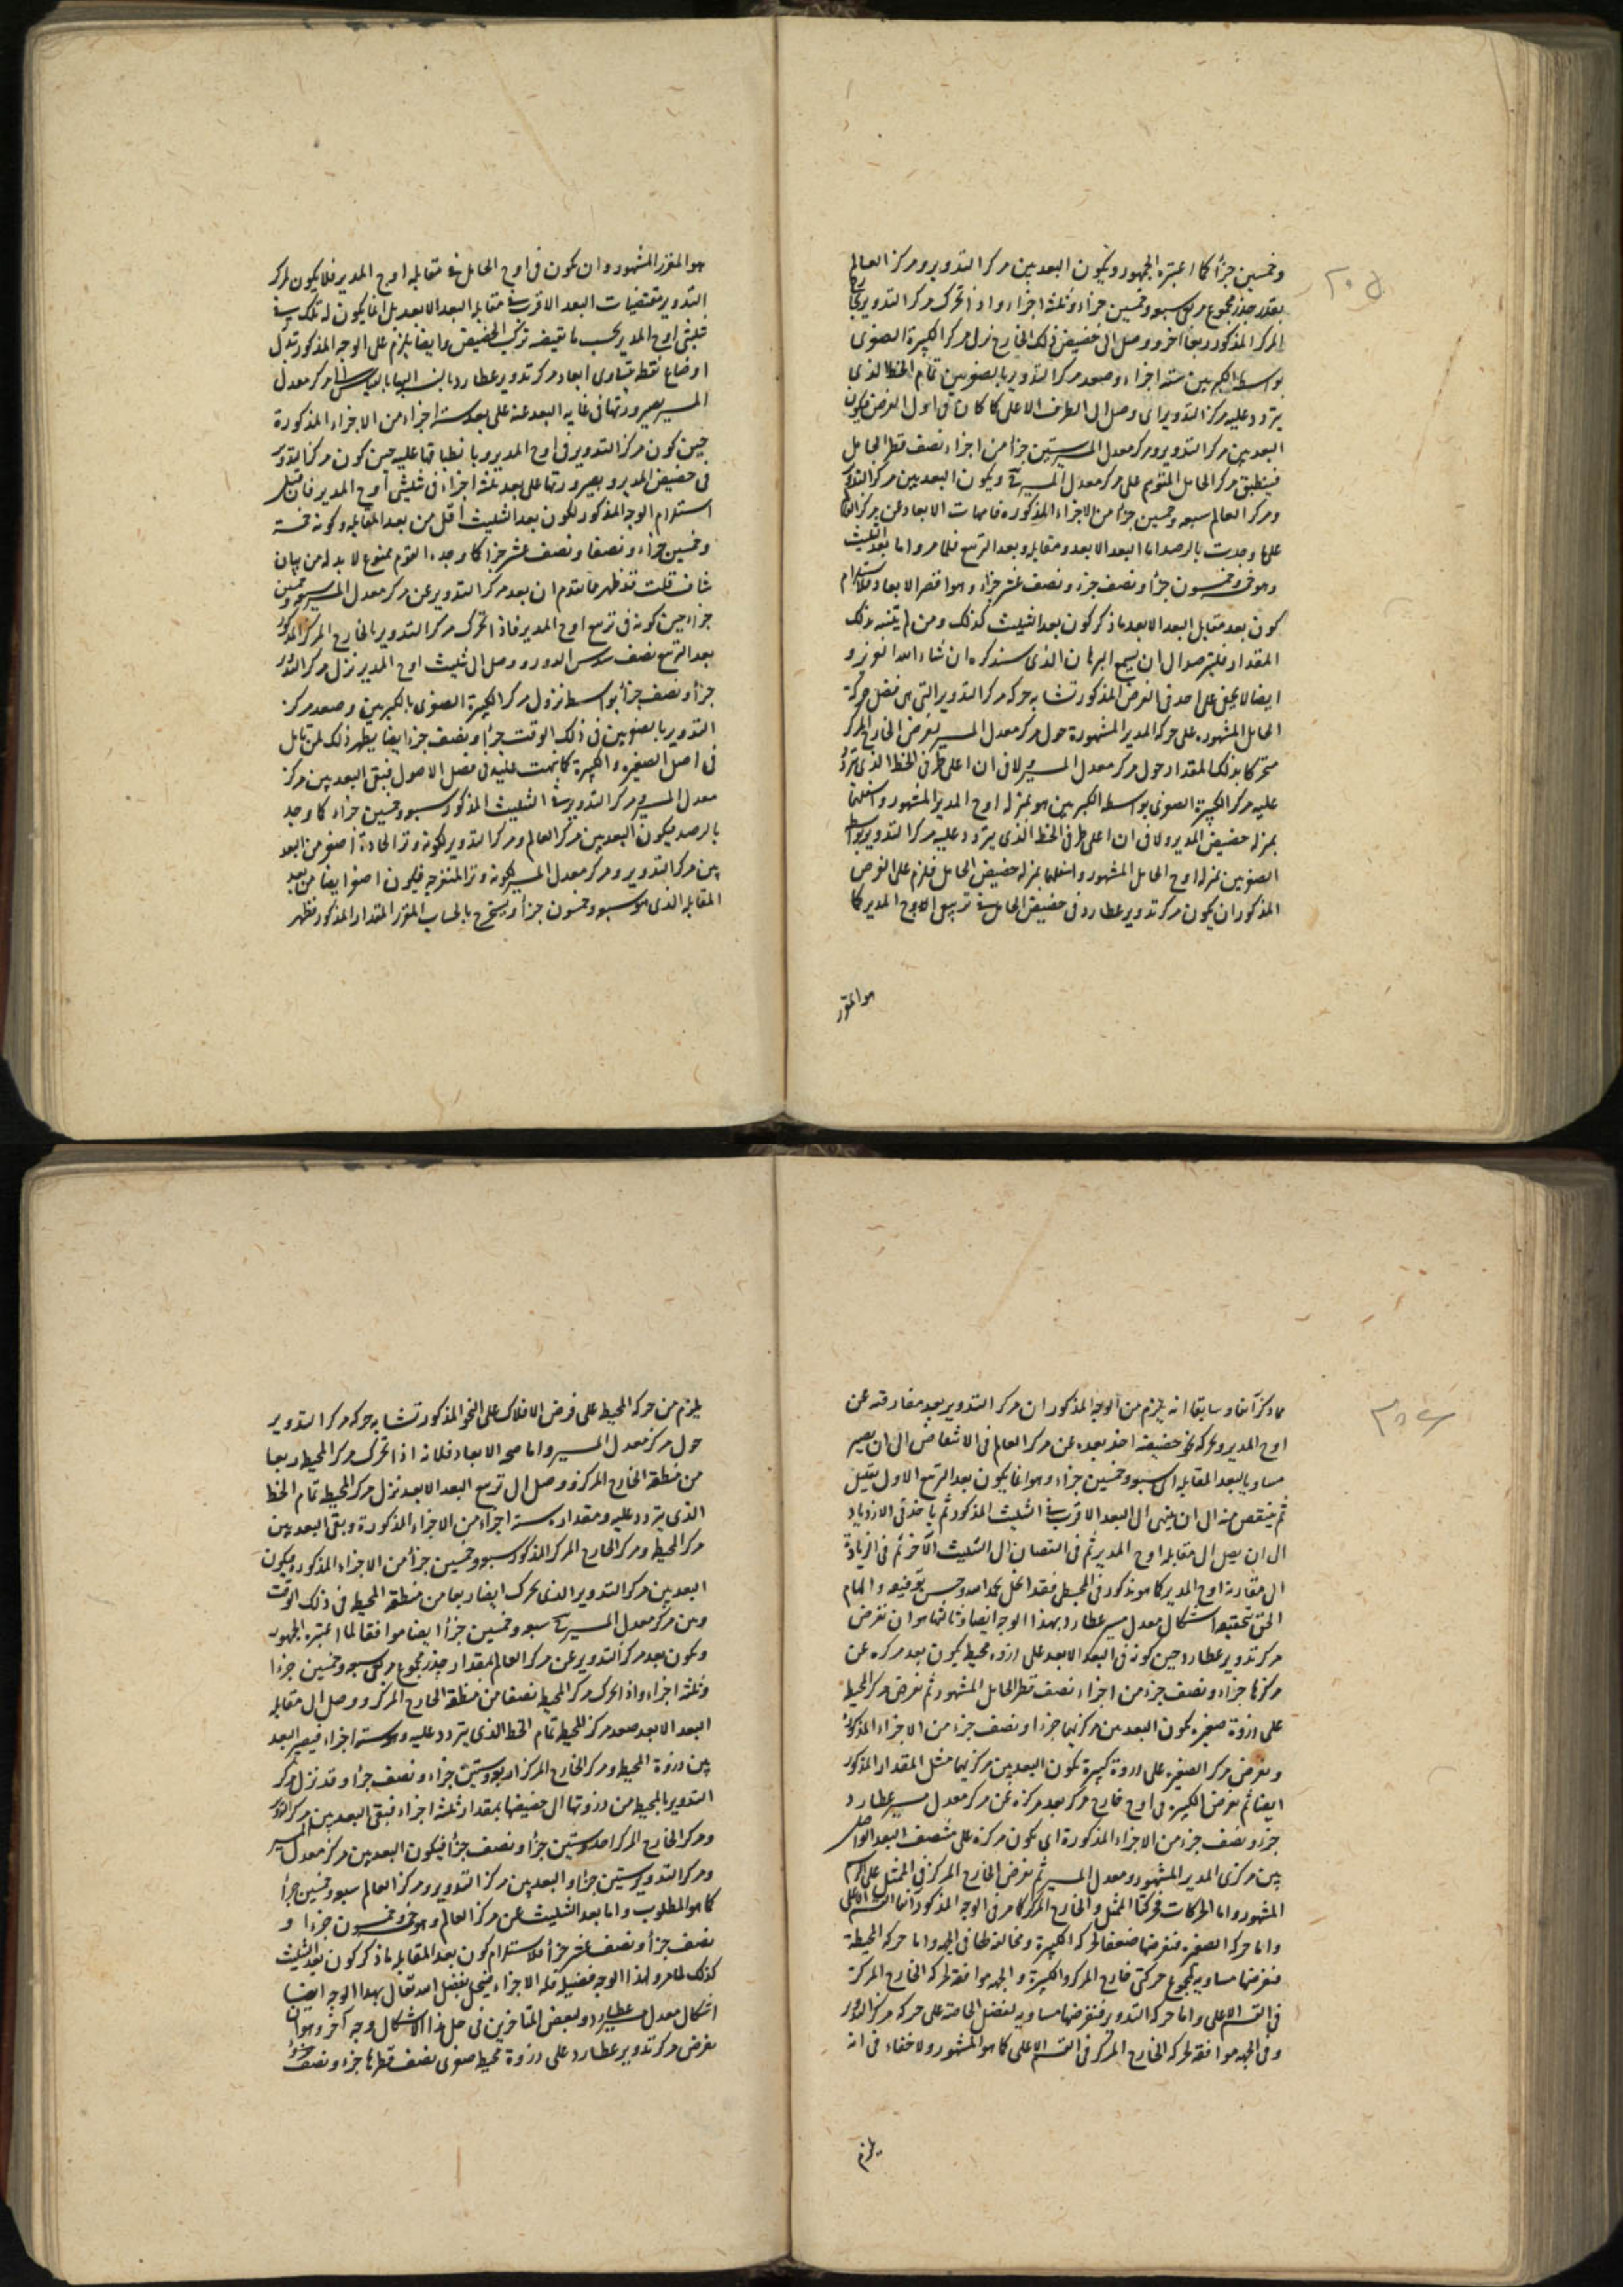 وخمسين جزأ كما اعتبره الجمهور ويكون البعد بين مركز التدوير ومركز العالم
بقدر جذر مجموع مربعى سبعه وخمسين جزاء وثلثه اجزاء واذا تحرك مركز التدوير بخارج
المركز المذكور ربعا آخر ووصل الى حضيض ذلك الخارج نزل مركز الكبيرة الصغرى
بواسطه الكبريين سته اجزاء وصعد مركز التدوير بالصغريين تمام الخط الذى
يتردد عليه مركز التدوير اى وصل الى الطرف الاعلى كما كان فى اول الغرض فيكون
البعد بين مركز التدوير ومركز معدل المسير ستين جزأ من اجزاء نصف قطر الحامل
فينطبق مركز الحامل المتوهم على مركز معدل المسير ويكون البعد بين مركز التدوير
ومركز العالم سبعه وخمسين جزاء من الاجزاء المذكوره فامهات الابعاد عن مركز العالم
على ما وجدت بالرصد اما البعد الابعد ومقابله وبعد التربيع فلما مر واما بعد التثليث
وهو خمسة وخمسون جزأ ونصف جزء ونصف عشر جزاء وهو اقصر الابعاد فلاستلزام
كون بعد مقابل البعد الابعد ما ذكر كون بعد التثليث كذلك ومن لم يتنبه بذلك
المقدار فليترصد الى ان يسمع البرهان الذى سنذكره ان شاء الله العزيز و
ايضا لا يخفى على احد فى الغرض المذكور تشابه حركه مركز التدوير التى هى فضل حركة
الحامل المشهوره على حركه المدير المشهورة حول مركز معدل المسير بغرض الخارج المركز
متحركا بذلك المقدار حول مركز معدل المسير ولا فى ان اعلى طرفى الخط الذى يتردد
عليه مركز الكبيرة الصغرى بواسطه الكبريين هو بمنزله اوج المدير المشهور واسفلهما
بمنزله حضيض المدير ولا فى ان اعلى طرفى الخط الذى يتردد عليه مركز التدوير بواسطه
الصغريين بمنزله اوج الحامل المشهور واسفلهما بمنزله حضيض الحامل فلزم على الغرض
المذكور ان يكون مركز تدوير عطارد فى حضيض الحامل فى تربيعى الاوج المدير كما
هو المقرر
هو المقرر المشهور وان يكون فى اوج الحامل فى مقابله اوج المدير فلا يكون لمركز
التدوير مقتضيات البعد الاقرب فى مقابله البعد الابعد بل انما يكون له تلك فى
تثليثى اوج المدير بحسب ما تقتضيه تركب الحضيض وايضا يلزم على الوجه المذكور تبدل
اوضاع نقطه تساوى ابعاد مركز تدوير عطارد بالنسبه اليها بالقياس الى مركز معدل
المسير بصيرورتها فى غايه البعد عنه على بعد سته اجزاء من الاجزاء المذكورة
حين كون مركز التدوير فى اوج المدير وبانطباقها عليه حين كون مركز التدوير
فى حضيض المدير وبصيرورتها على بعد ثلثه اجزاء فى تثليثى اوج المدير فان قيل
استلزام الوجه المذكور لكون بعد التثليث اقل من بعد المقابله وكونه خمسة
وخمسين جزاء ونصفا ونصف عشر جزأ كما وجده القوم ممنوع لا بد له من بيان
شاف قلت قد ظهر مما تقدم ان بعد مركز التدوير عن مركز معدل المسير سبعه وخمسين
جزاء حين كونه فى تربيع اوج المدير فاذا تحرك مركز التدوير بالخارج المركز المذكور
بعد التربيع نصف سدس الدور ووصل الى تثليث اوج المدير نزل مركز التدوير
جزأ ونصف جزأ بواسطه نزول مركز الكبيرة الصغرى بالكبريين وصعد مركز
التدوير بالصغريين فى ذلك الوقت جزأ ونصف جزأ ايضا يظهر ذلك لمن تامل
فى اصل الصغيره والكبيرة كما نبهت عليه فى فصل الاصول فبقى البعد بين مركز
معدل المسير ومركز التدوير فى التثليث المذكور سبعه وخمسين جزاء كما وجد
بالرصد فيكون البعد بين مركز العالم ومركز التدوير لكونه وتر الحادة اصغر من البعد
بين مركز التدوير ومركز معدل المسير لكونه وتر المنفرجه فيكون اصغر ايضا من بعد
المقابله الذى هو سبعه وخمسون جزأ ويستخرج بالحساب المقرر المقدار المذكور فظهر
مما ذكر آنفا وسابقا انه يلزم من الوجه المذكور ان مركز التدوير بعد مفارقته عن
اوج المدير وتحركه نحو حضيضه اخذ بعده عن مركز العالم فى الانتقاص الى ان يصير
مساويا لبعد المقابله اى سبعه وخمسين جزاء وهو انما يكون بعد التربيع الاول بقليل
ثم ينتقص منه الى ان ينتهى الى البعد الاقرب فى التثليث المذكور ثم ياخذ فى الازدياد
الى ان يصل الى مقابله اوج المدير ثم فى انتقصان الى التثليث الآخر ثم فى الزيادة
الى مقارنة اوج المدير كما هو مذكور فى المجسطى فقد انحل بحمد الله وحسن توفيقه والهام
الحق بتحقيقه اشكال معدل مسير عطارد بهذا الوجه ايضا وثالثها هو ان نفرض
مركز تدوير عطارد حين كونه فى البعد الابعد على ذروه محيطه يكون بعد مركزه عن
مركزها جزاء ونصف جزء من اجزاء نصف قطر الحامل المشهور ثم نفرض مركز المحيطه
على ذروة صغيره يكون البعد بين مركزيهما جزءا ونصف جزء من الاجزاء المذكورة
ونفرض مركز الصغيره على ذروة كبيرة يكون البعد بين مركزيهما مثل المقدار المذكور
ايضا ثم نفرض الكبيرة فى اوج خارج مركز بعد مركزه عن مركز معدل مسير عطارد
جزء ونصف جزء من الاجزاء المذكورة اى يكون مركزه على منتصف البعد الواصل
بين مركزى المدير المشهور ومعدل المسير ثم نفرض الخارج المركز فى الممثل على الرسم
المشهور واما الحركات فحركتا الممثل والخارج المركز كما مر فى الوجه المذكور آنفا القسم الاعلى
واما حركه الصغيره فنفرضها ضعف حركه الكبيرة ومخالفة لها فى الجهه واما حركه المحيطة
فنفرضها مساويه لمجموع حركتى خارج المركز والكبيرة والجهه موافقة لحركه الخارج المركز
فى القسم الاعلى واما حركه التدوير فنفرضها مساويه لفضل الخاصة على حركه مركز التدوير
وفى الجهه موافقة لحركه الخارج المركز فى القسم الاعلى كما هو المشهور ولا خفاء فى انه
يلزم
يلزم من حركه المحيط على فرض الافلاك على النحو المذكور تشابه حركه مركز التدوير
حول مركز معدل المسير واما صحه الابعاد فلانه اذا تحرك مركز المحيطه ربعا
من منطقه الخارج المركز ووصل الى تربيع البعد الابعد نزل مركز المحيطه تمام الخط
الذى يتردد عليه ومقداره سته اجزاء من الاجزاء المذكورة وبقى البعد بين
مركز المحيطه ومركز الخارج المركز المذكور سبعه وخمسين جزأ من الاجزاء المذكوره ويكون
البعد بين مركز التدوير الذى تحرك ايضا ربعا من منطقه المحيطه فى ذلك الوقت
وبين مركز معدل المسير سبعه وخمسين جزأ ايضا موافقا لما اعتبره الجمهور
ويكون بعد مركز التدوير عن مركز العالم بمقدار جذر مجموع مربعى سبعه وخمسين جزءا
وثلثه اجزاء واذا تحرك مركز المحيطه نصفا من منطقه الخارج المركز ووصل الى مقابله
البعد الابعد صعد مركز المحيطه تمام الخط الذى يتردد عليه وهو سته اجزاء فيصير البعد
بين ذروة المحيطه ومركز الخارج المركز اربعه وستين جزاء ونصف جزأ وقد نزل مركز
التدوير بالمحيطه من ذروتها الى حضيضها بمقدار ثلثه اجزاء فبقى البعد بين مركز التدوير
ومركز الخارج المركز احد وستين جزأ ونصف جزأ فيكون البعد بين مركز معدل المسير
ومركز التدوير ستين جزءا والبعد بين مركز التدوير ومركز العالم سبعه وخمسين جزأ
كما هو المطلوب واما بعد التثليث عن مركز العالم وهو خمسه وخمسون جزءا و
نصف جزأ ونصف عشر جزأ فلاستلزام كون بعد المقابله ما ذكر كون بعد التثليث
كذلك لما مر ولهذا الوجه فضيله قله الاجزاء فينحل بفضل الله تعالى بهذا الوجه ايضا
اشكال معدل مسير عطارد ولبعض المتاخرين فى حل هذا الاشكال وجه آخر وهو ان
نفرض مركز تدوير عطارد على ذروة محيطه صغرى نصف قطرها جزء ونصف جزء